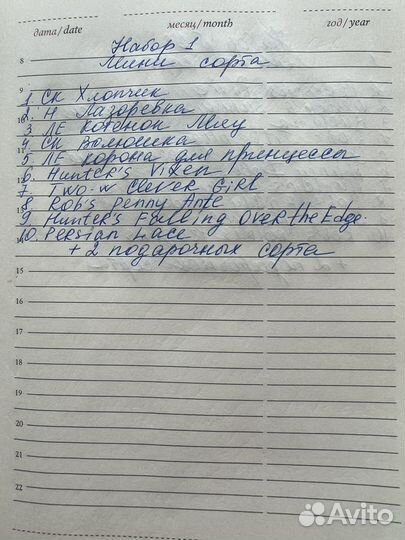 дата/date месяц/month год/year
Набор 1
8 Мини сорта
9
1. СК Хлопчик
2. Н Лазоревка
3 ЛЕ Котёнок Мяу
4 СК Валюшка
5 ЛЕ Корона для принцессы
6. Hunter's Vixen
7 Two-w Clever Girl
8 Rob's Penny Ante
9 Hunter's Falling Over the Edge.
10. Persian Lace
+ 2 подарочных сорта
15
16
17
18
19
20
21
22
Avito